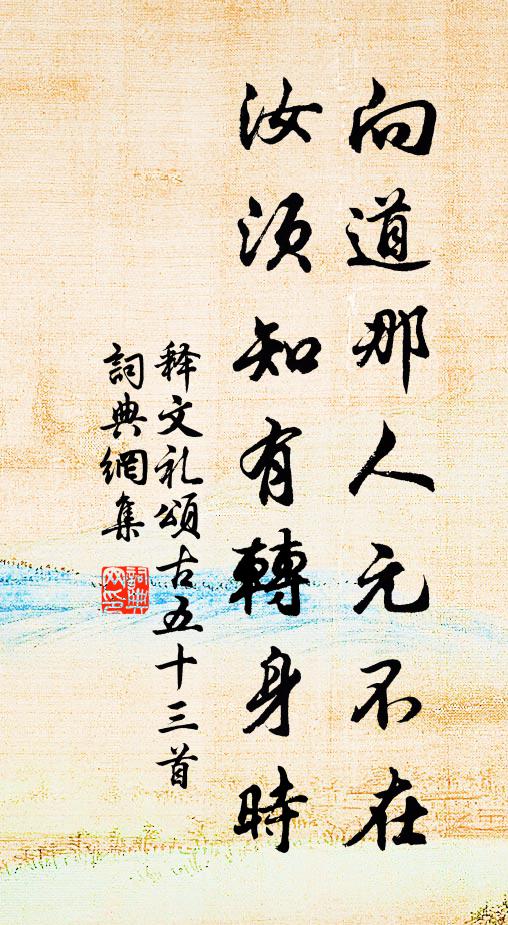 向道那人元不在
汝须知有轉身時
释文礼頌古五十三首
詞典網集